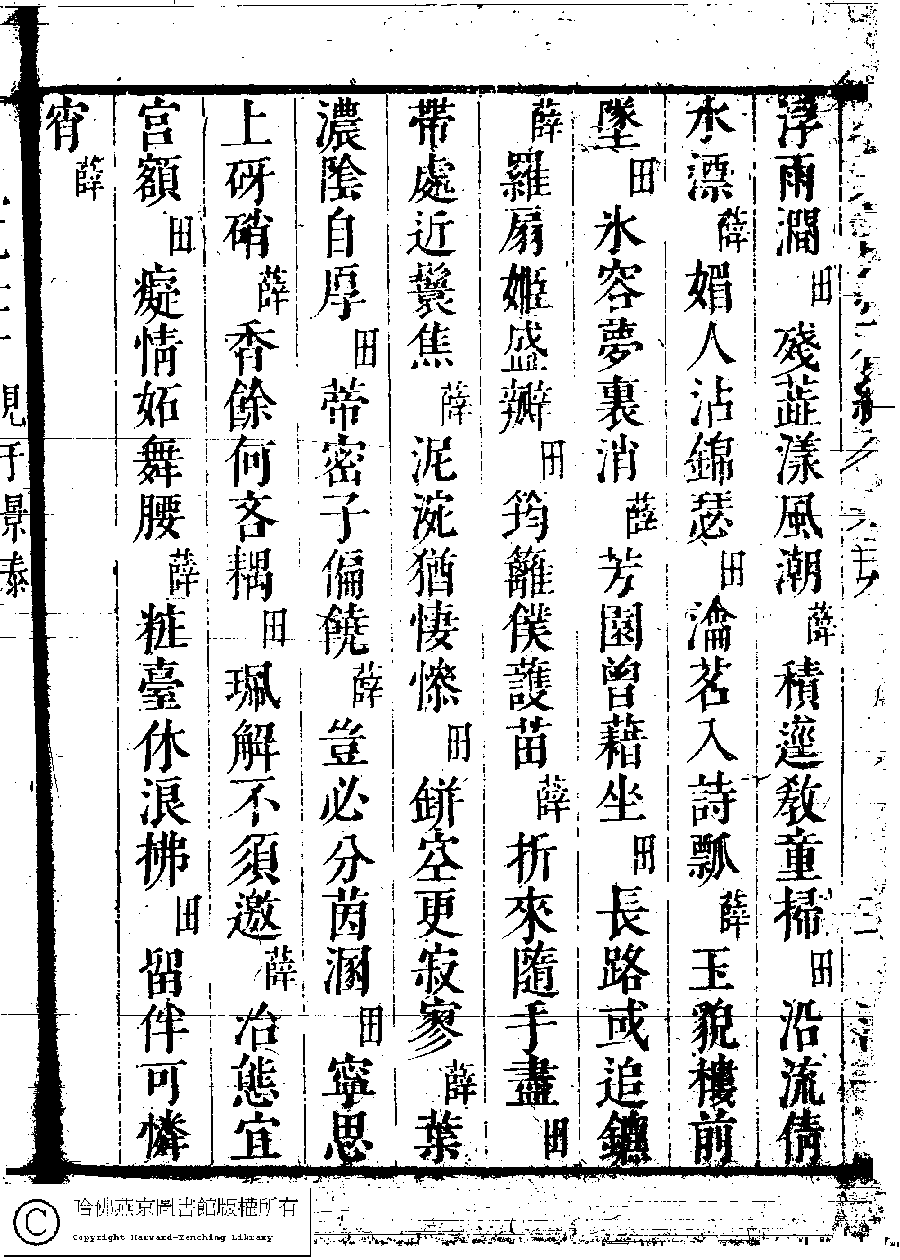 浮雨澗田殘蕋漾風潮薛積逕敎童掃田沿流倩
水漂薛媚人沾錦瑟田瀹茗入詩瓢薛玉貌樓前
墜田氷容夢裏消薛芳園曾藉坐田長路或追鑣
薛羅扇姬盛瓣田筠籬僕護苗薛折來隨手盡田
帶處近鬟焦薛泥涴猶悽憭田缾空更寂寥薛葉
濃陰自厚田蒂密子偏饒薛豈必分茵溷田寧思
上砑硝薛香餘何吝耦田珮解不須邀薛冶態宜
宮額田癡情妬舞腰薛粧臺休浪拂田留伴可憐
宵薛
見于景泰
哈佛燕京圖書館版權所有
Copyright Harvard-Yenching Library